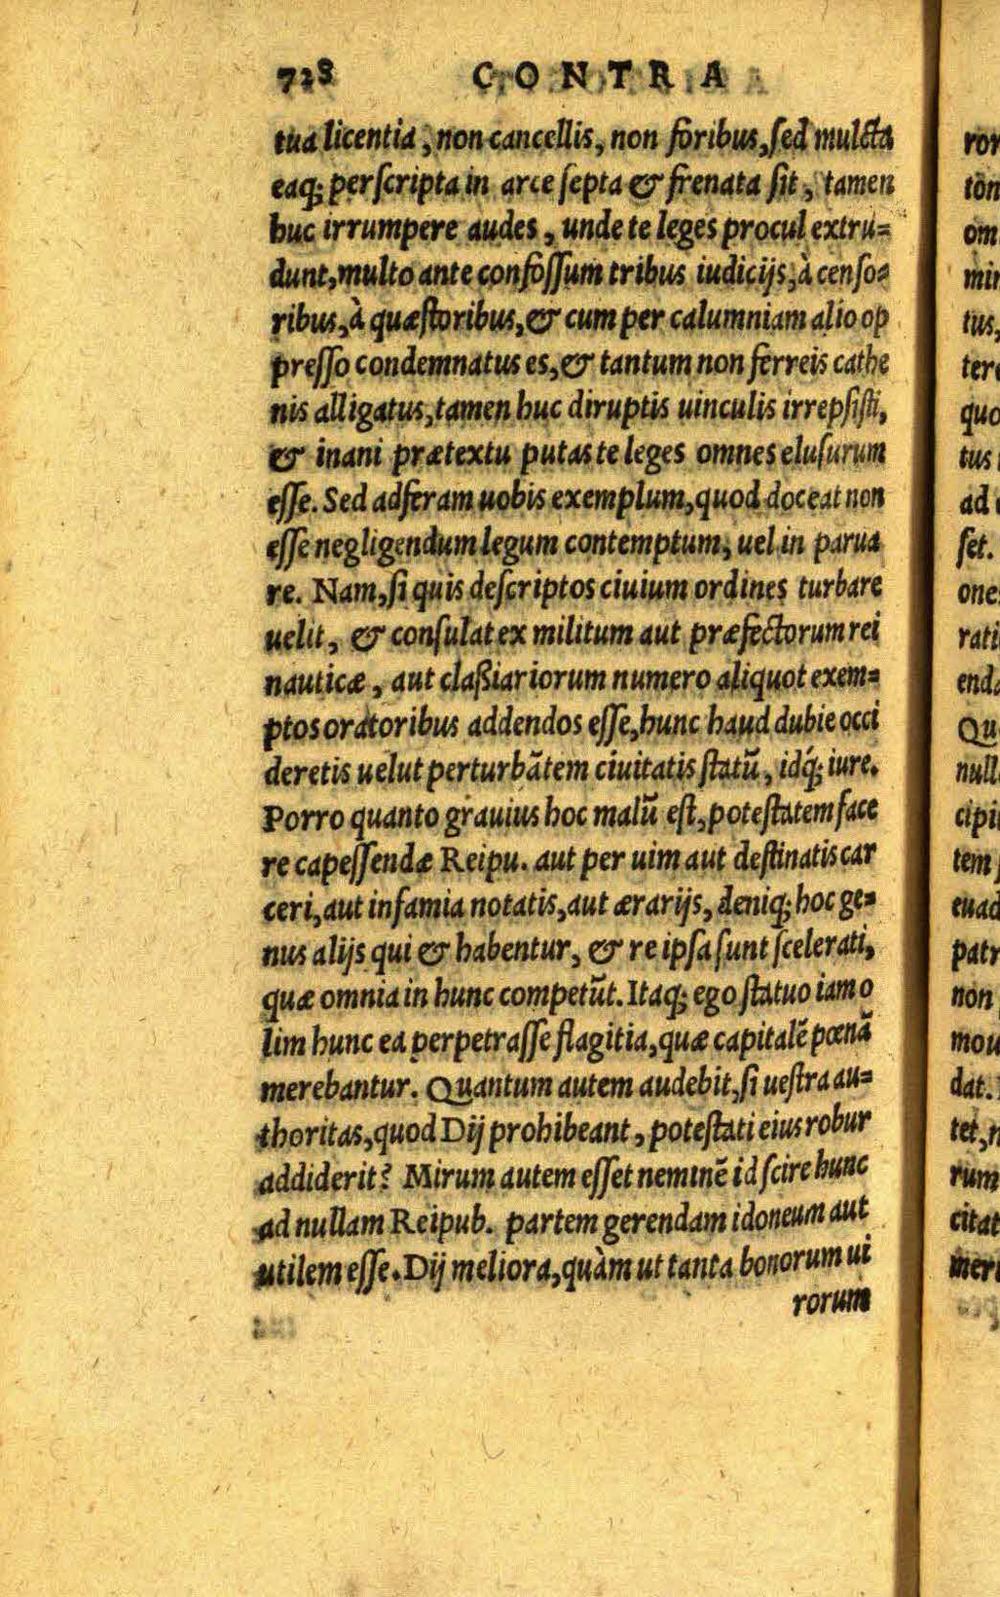 728 CONTRA
tua licentia, non cancellis, non foribus, sed mulcta
eaq; perscripta in arce septa & frenata sit, tamen
huc irrumpere audes, unde te leges procul extru=
dunt, multo ante confossum tribus iudicijs, à censo=
ribus, à quæstoribus, & cum per calumniam alio op
presso condemnatus es, & tantum non ferreis cathe
nis alligatus, tamen huc diruptis uinculis irrepsisti,
& inani prætextu putas te leges omnes elusurum
esse. Sed adferam uobis exemplum, quod doceat non
esse negligendum legum contemptum, uel in parua
re. Nam, si quis descriptos ciuium ordines turbare
uelit, & consulat ex militum aut præfectorum rei
nauticæ, aut claßiariorum numero aliquot exem=
ptos oratoribus addendos esse, hunc haud dubie occi
deretis uelut perturbātem ciuitatis statū, idq́; iure.
Porro quanto grauius hoc malū est, potestatem face
re capessendæ Reipu. aut per uim aut destinatis car
ceri, aut infamia notatis, aut ærarijs, deniq; hoc ge=
nus alijs qui & habentur, & re ipsa sunt scelerati,
quæ omnia in hunc competūt. Itaq; ego statuo iam o
lim hunc ea perpetrasse flagitia, quæ capitalē pœnā
merebantur. Quantum autem audebit, si uestra au=
thoritas, quod Dij prohibeant, potestati eius robur
addiderit? Mirum autem esset neminē id scire hunc
ad nullam Reipub. partem gerendam idoneum aut
utilem esse. Dij meliora, quàm ut tanta bonorum ui
rorum